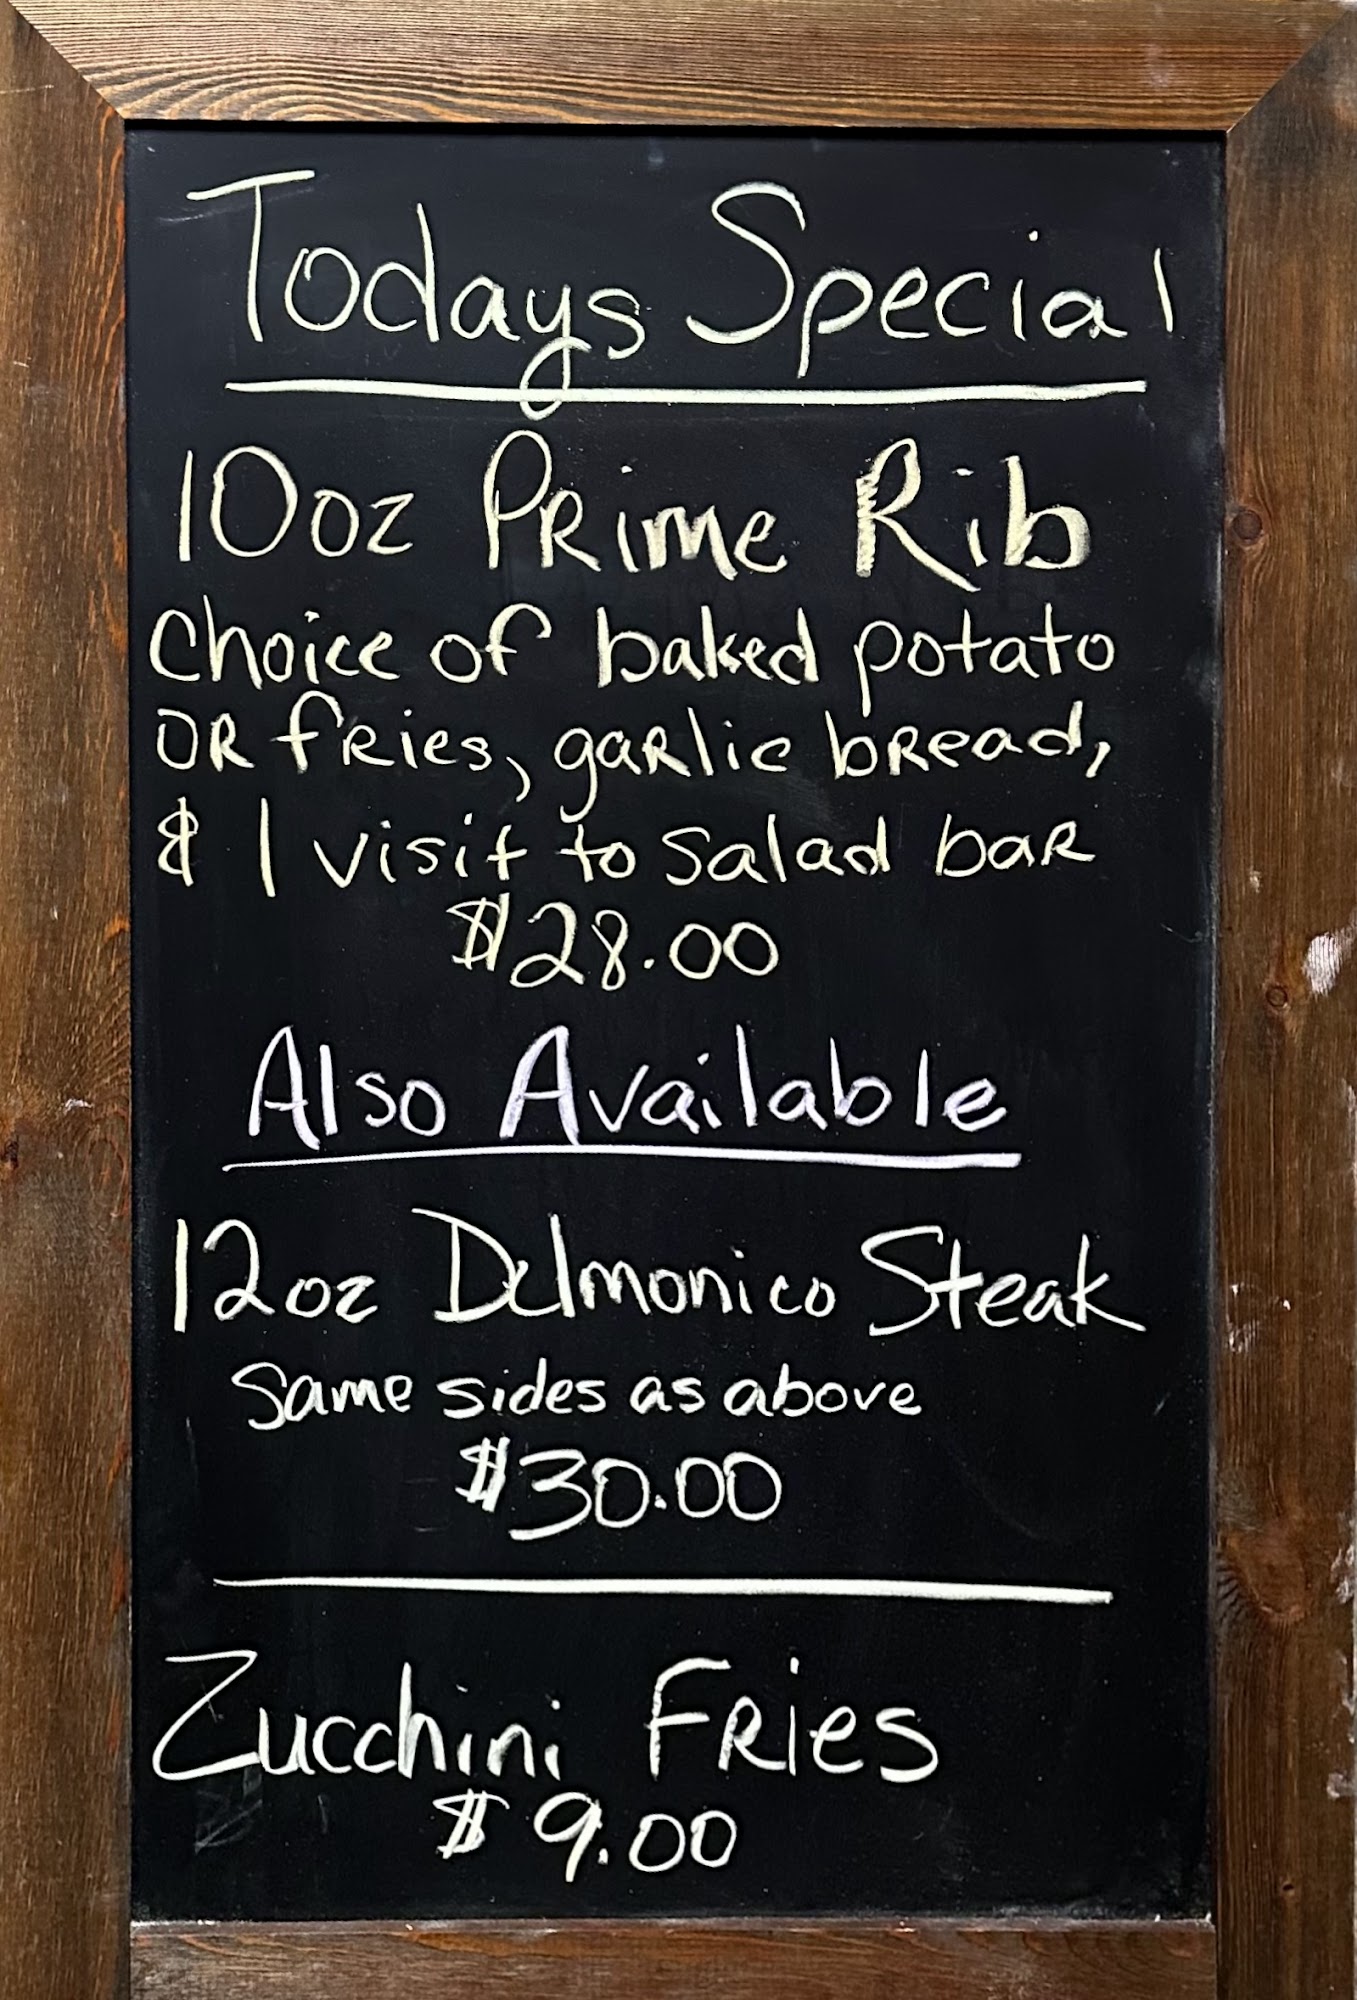 Todays Special
10oz Prime Rib
Choice of baked potato
or fries, garlic bread,
& 1 visit to salad bar
$28.00
Also Available
12oz Delmonico Steak
Same sides as above
$30.00
Zucchini Fries
$9.00